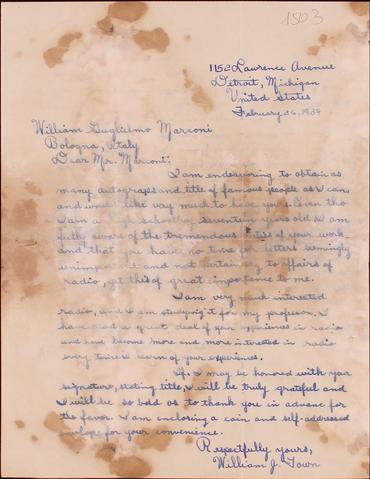 1503
1152 Lawrence Avenue
Detroit, Michigan
United States
February 26, 1934
William Guglielmo Marconi
Bologna, Italy
Dear Mr. Marconi:
I am endeavoring to obtain as
many autographes and title of famous people as I can,
and would like very much to have yours. Even tho
I am a high schoolboy seventeen years old I am
fully aware of the tremendous of your work
and that you have no time for letters seemingly
unimportant and not pertaining to affairs of
radio, yet this of great importance to me.
I am very much interested
radio, and I am studying it for my profession. I
have read a great deal of your experiences in radio
and have become more and more interested in radio
every time I learn of your experiences.
If I may be honored with your
signature, stating title, I will be truly grateful and
I will be so bold as to thank you in advance for
the favor. I am enclosing a coin and self-addressed
envelope for your convenience.
Respectfully yours,
William J. Town